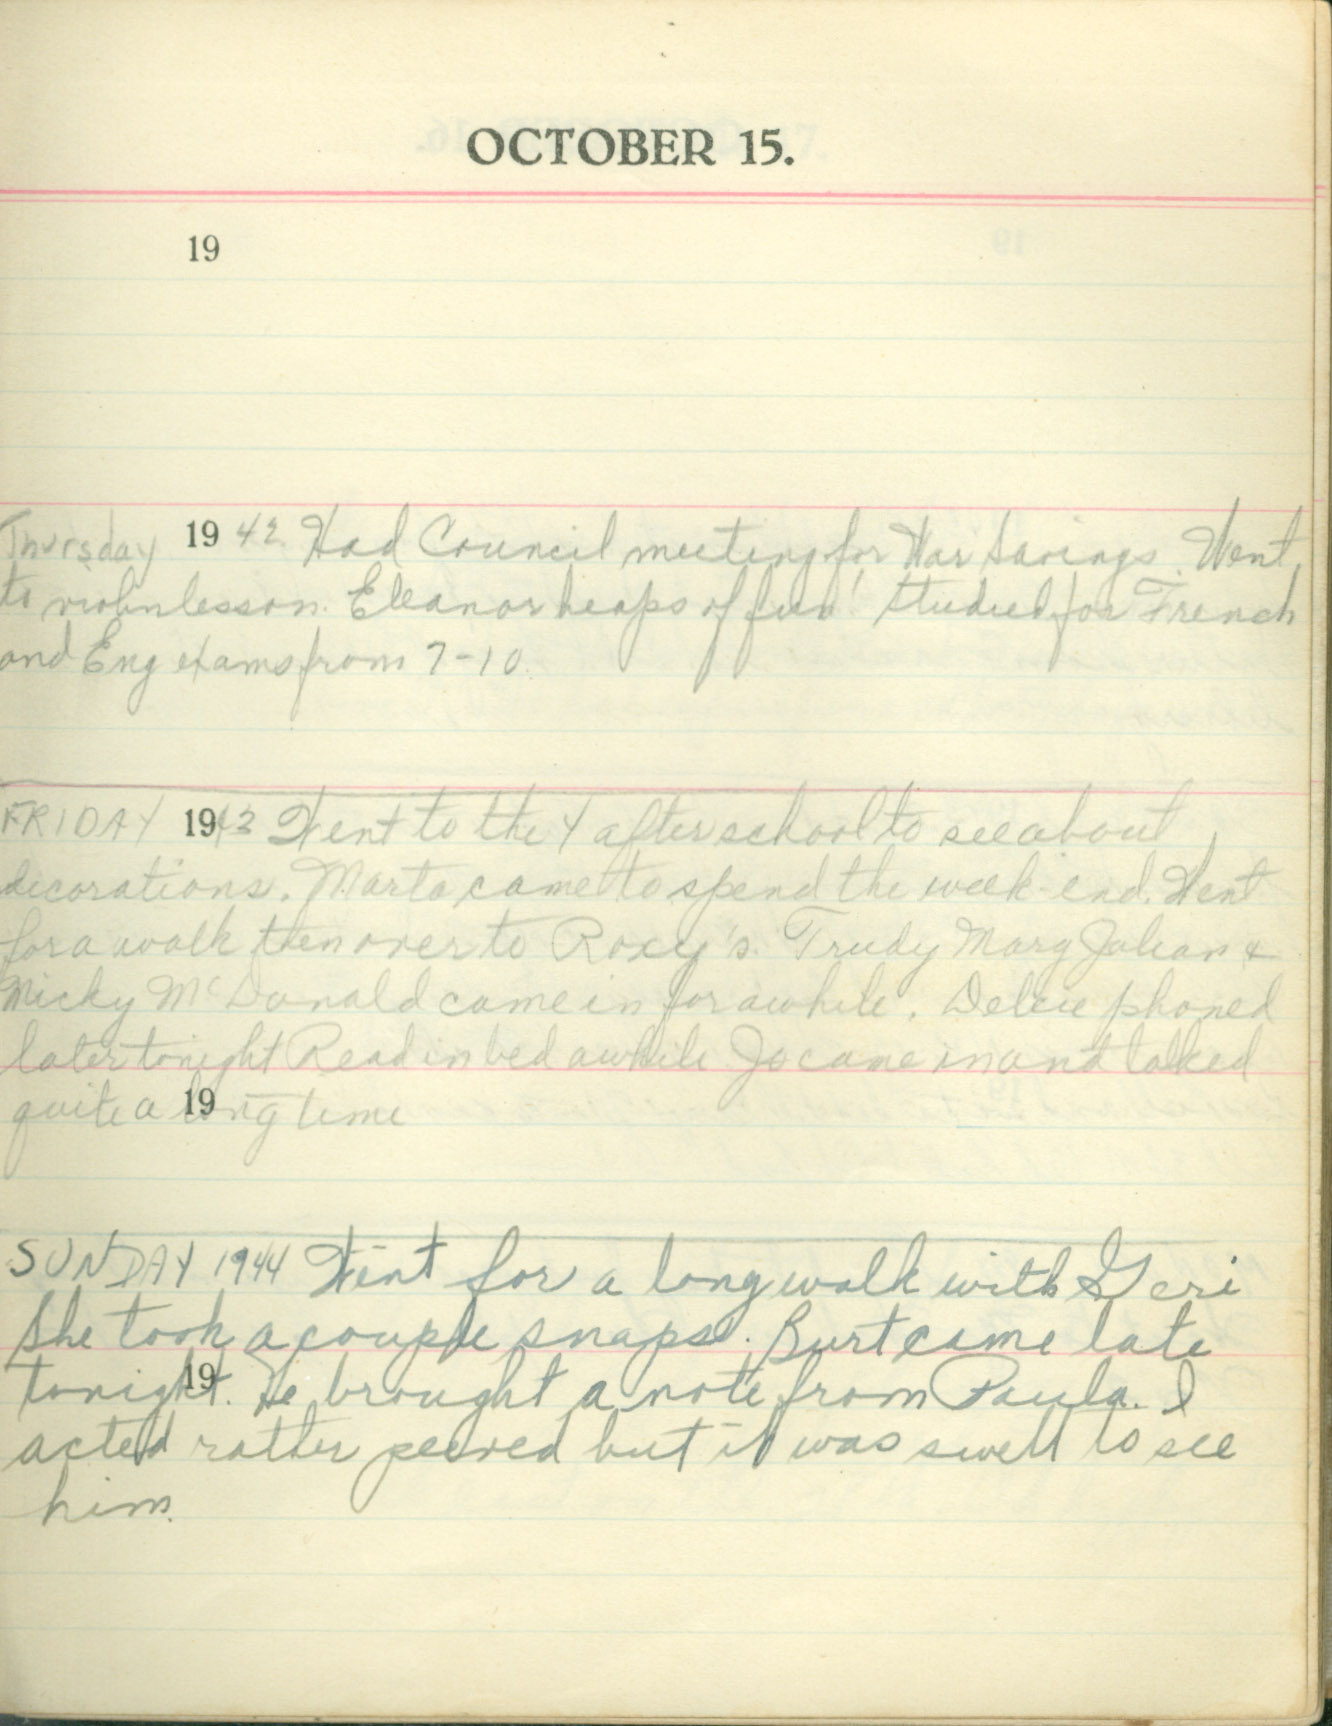 OCTOBER 15.
19
Thursday 1942. Had Council meeting for War Savings. Went
to violin lesson. Eleanor heaps of fun! Studied for French
and Eng exams from 7-10.
FRIDAY 1943 Went to the Y after school to see about
decorations. Marta came to spend the week-end. Went
for a walk then over to Roxy's. Trudy Marg &
Micky McDonald came in for awhile. phoned
later tonight Read in bed awhile Jo came in and talked
quite a long time
19
SUNDAY 1944 Went for a long walk with Geri
She took a couple snaps. Burt came late
tonight. He brought a note from Paula. I
19
acted rather peeved but it was swell to see
him.